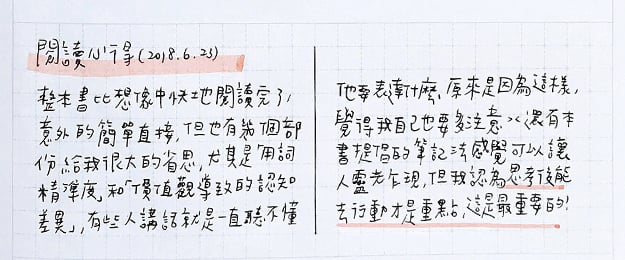 閱讀心得(2018.6.23)
整本書比想像中快地閱讀完了,
意外的簡單直接,但也有幾個部
份給我很大的省思,尤其是「用詞
精準度」和「價值觀導致的認知
差異」,有些人講話就是一直聽不懂
他要表達什麼,原來是因為這樣,
覺得我自己也要多注意>< 還有本
書提倡的筆記法感覺可以讓
人靈光乍現,但我認為思考後能
去行動才是重點,這是最重要的!